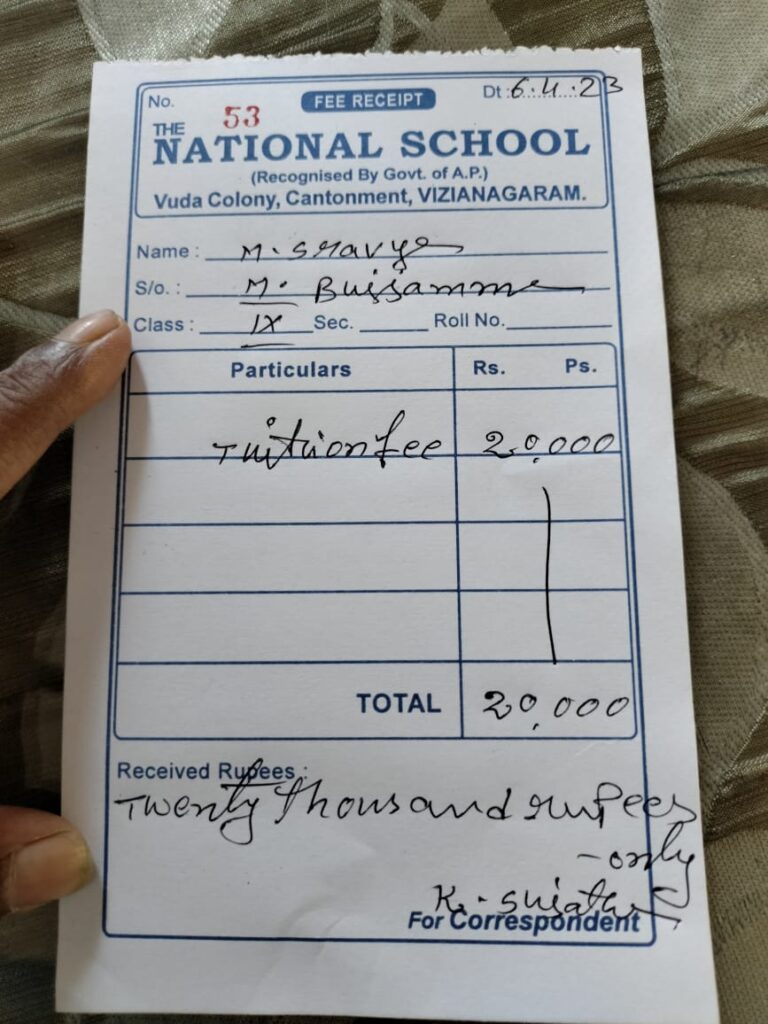 No. 53 FEE RECEIPT Dt :6.4.23
THE
NATIONAL SCHOOL
(Recognised By Govt. of A.P.)
Vuda Colony, Cantonment, VIZIANAGARAM.
Name : M. Sravya
S/o. : M.
Class : IX Sec. Roll No.
Particulars Rs. Ps.
Tuition fee 20,000
TOTAL 20,000
Received Rupees :
Twenty thousand rupees
- only
K. Sujatha
For Correspondent